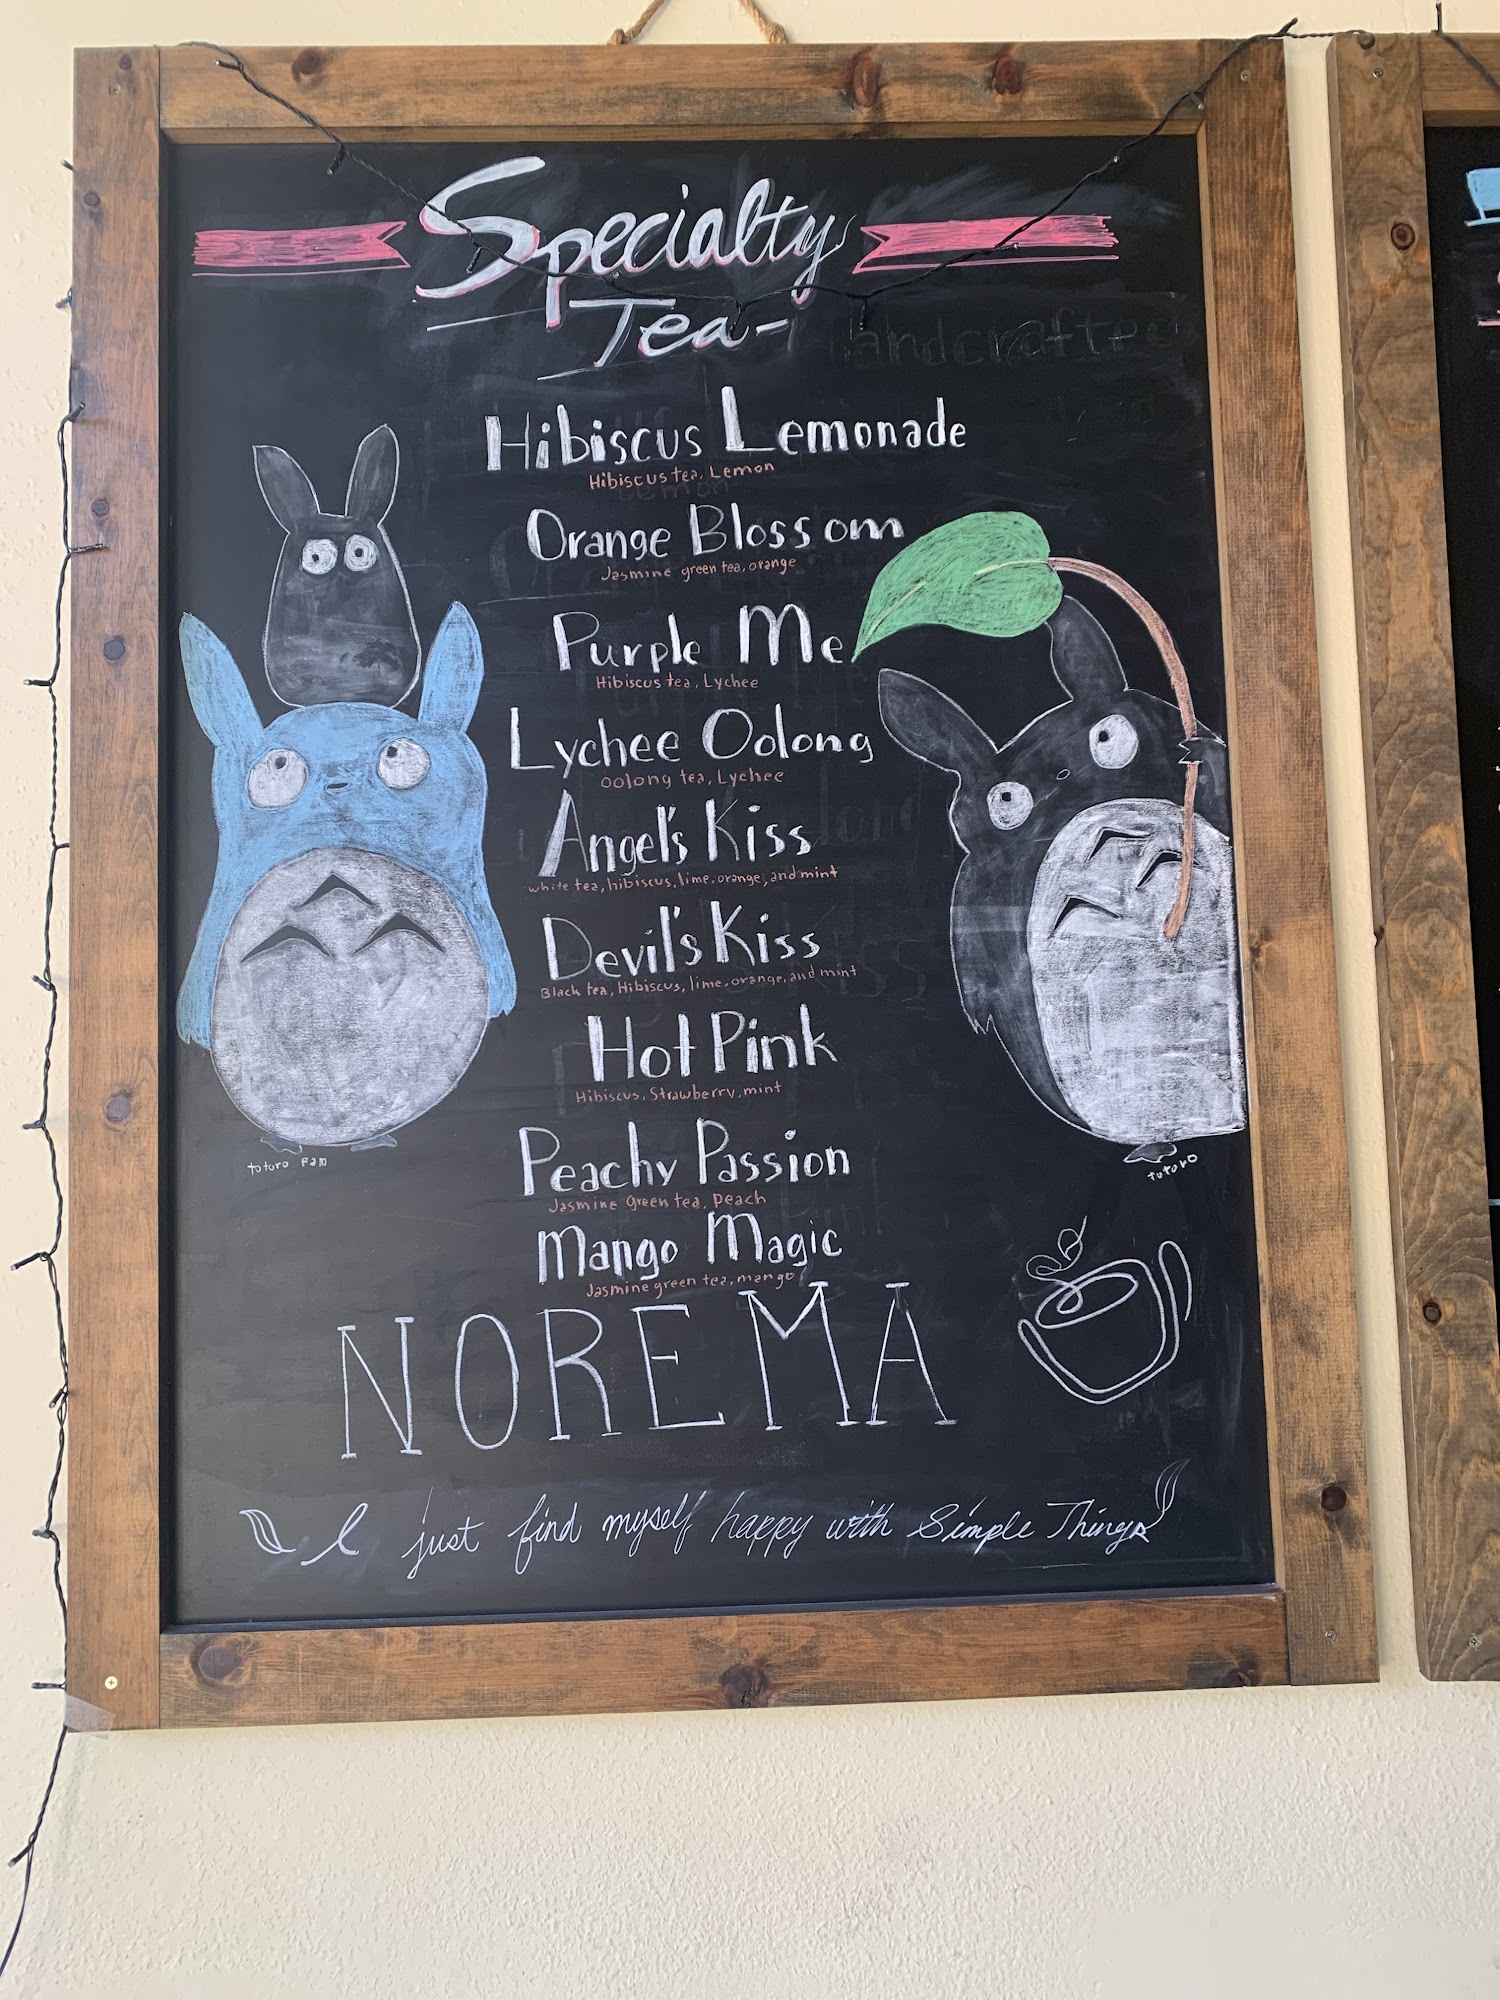 Specialty
Tea-
handcrafted
Hibiscus Lemonade
Hibiscus tea, Lemon
Orange Blossom
Jasmine green tea, orange
Purple Me
Hibiscus tea, Lychee
Lychee Oolong
oolong tea, Lychee
Angel's Kiss
white tea, hibiscus, lime, orange, and mint
Devil's Kiss
Black tea, Hibiscus, lime, orange, and mint
Hot Pink
Hibiscus, Strawberry, mint
Peachy Passion
Jasmine Green tea, peach
totoro Fam
totoro
Mango Magic
Jasmine green tea, mango
NOREMA
I just find myself happy with Simple Things